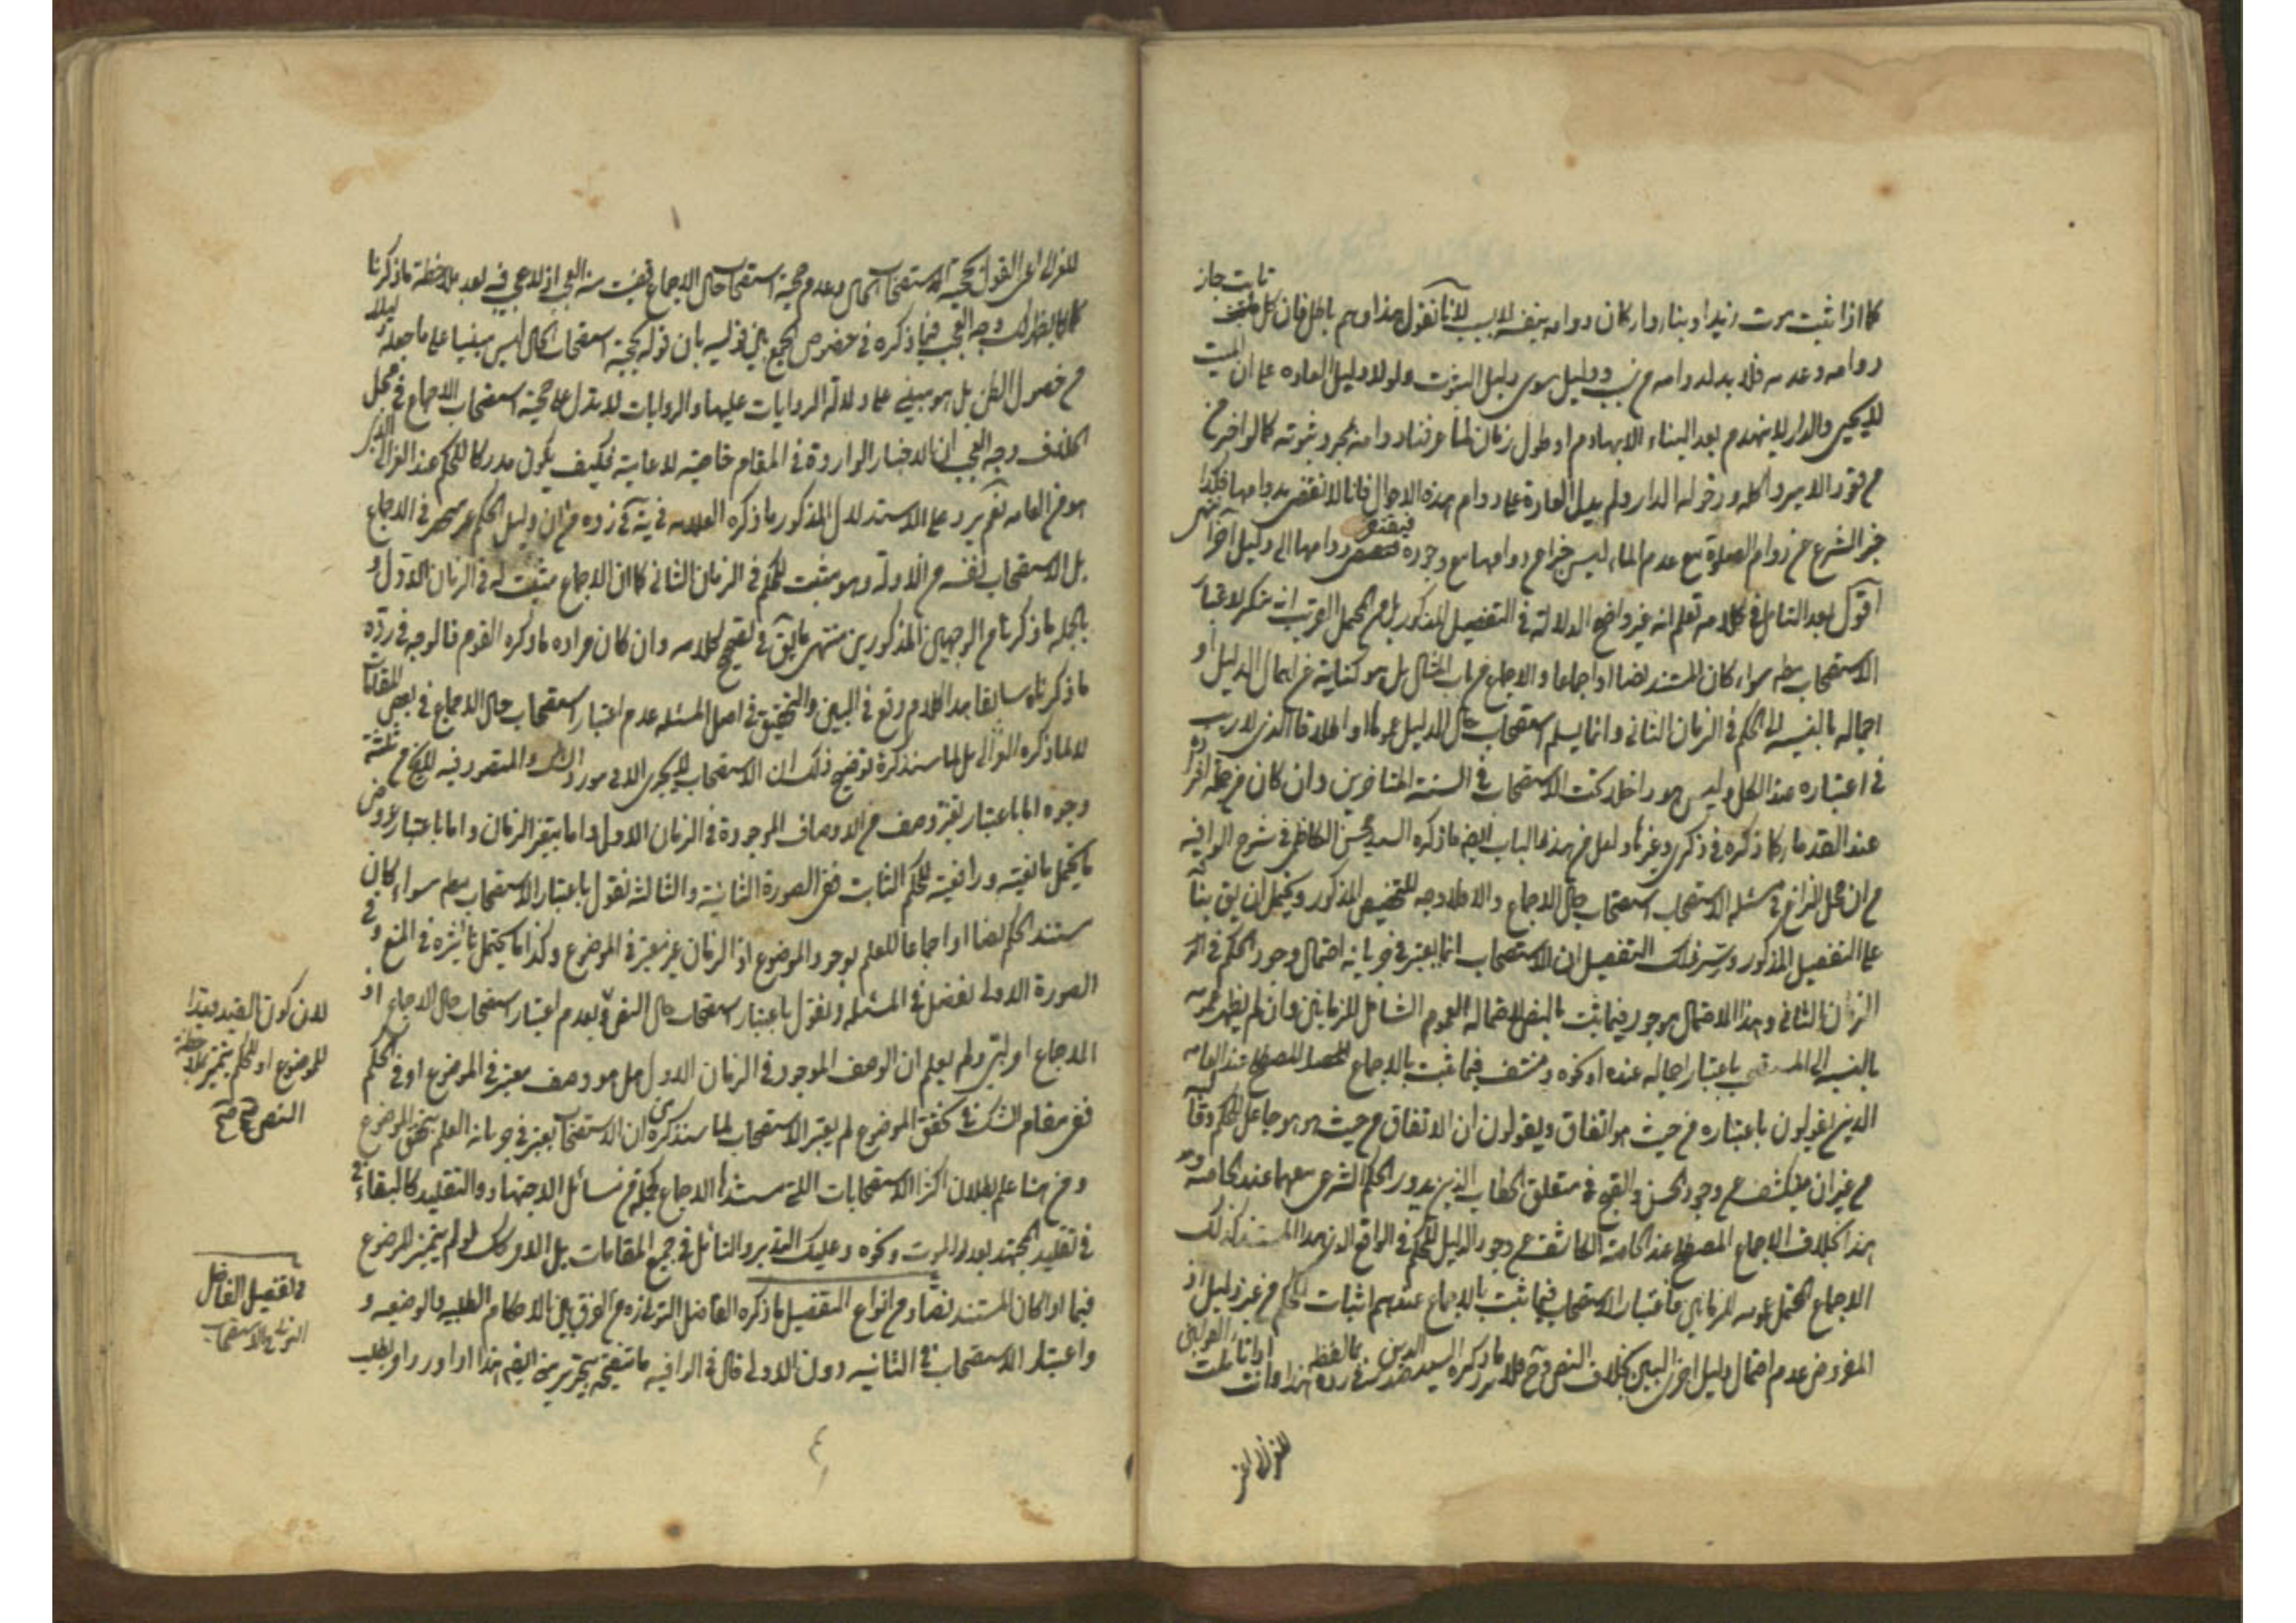 كما اذا ثبت موت زيد او بناء دار كان دوامه بنفسه لا بسبب لانا نقول هذا وهم باطل فان كل ثابت جاز
دوامه وعدمه فلا بد لدوامه من سبب ودليل سوى دليل الثبوت ولولا دليل العادة على ان الميت
لا يحيى والدار لا ينهدم بعد البناء الا بهادم او طول زمان لما عرفنا دوامه بمجرد ثبوته كما لو اخبر عن
قعود الامير واكله ودخوله الدار ولم يدل العادة على دوام هذه الاحوال فانا لا نقضى بدوامها فكذا
خبر الشرع عن دوام الصلوة مع عدم الماء ليس خبرا عن دوامها مع وجوده فيفتقر دوامها الى دليل آخر انتهى
اقول بعد التأمل في كلامه تعلم انه غير واضح الدلالة في التفصيل المذكور بل من المحتمل القريب انه منكر لاعتبار
الاستصحاب مط سواء كان المستند نصا او اجماعا والاجماع من باب المثال بل هو كناية عن اهمال الدليل او
اجماله بالنسبة الى الحكم في الزمان الثاني وانما يسلم استصحاب حال الدليل عموما او اطلاقا الذي لا ريب
في اعتباره عند الكل وليس هو داخلا تحت الاستصحاب في السنة المتأخرين وان كان من جملة افراده
عند القدماء كما ذكره في ذكرى وغيرها ولعل من هذا الباب ايضا ما ذكره السيد محسن الكاظمى في شرح الوافية
من ان محل النزاع في مسئلة الاستصحاب استصحاب حال الاجماع والا فلا وجه للتخصيص المذكور ويحتمل ان يق بناء
على التفصيل المذكور وسر ذلك التفصيل ان الاستصحاب انما يعتبر في جريانه احتمال وجود الحكم في
الزمان الثاني وهذا الاحتمال موجود فيما ثبت بالنص لاحتماله العموم الشامل للزمانين وان لم يظهر عمومه
بالنسبة الى المستصحب باعتبار اجماله عنده او نحوه ومنتف فيما ثبت بالاجماع المصطلح عند العامة
الذين يقولون باعتباره من حيث هو اتفاق ويقولون ان الاتفاق من حيث هو هو جاعل للحكم
من غير ان ينكشف عن وجود الحسن والقبح في متعلق الخطاب الذين يدور الحكم الشرعي معهما عند الخاصة
هذا بخلاف الاجماع المصطلح عند الخاصة الكاشف عن وجود الدليل للحكم في الواقع الذي هذا المستند كذلك
الاجماع المحتمل عمومه للزمانين فاعتبار الاستصحاب فيما ثبت بالاجماع عندهم اثبات للحكم من غير دليل اذ
المفروض عدم احتمال دليل اخر في البين بخلاف النص وح فلا يرد ما ذكره السيد صدر الدين في رده بما لفظه هذا وانت اذا تأملت
للغزالى
للغزالى اعنى القول بحجية الاستصحاب الحال وعدم حجية استصحاب حال الاجماع قضيت منه العجب اذ لا عجب فيه بعد ملاحظة ما ذكرنا
كما لا يظهر لك وجه العجب فيما ذكره في خصوص الجمع بين قوليه بان قوله بحجية استصحاب الحال ليس مبنيا على ما جعله دليلا
من حصول الظن بل هو مبنى على دلالة الروايات عليها والروايات لا تدل على حجية استصحاب الاجماع في محل
الخلاف وجه العجب ان الاخبار الواردة في المقام خاصية لا عامية فكيف يكون مدركا للحكم عند الغزالى الذي
هو من العامة نعم يرد على الاستدلال المذكور ما ذكره العلامة في يه في رده من ان دليل الحكم غير منحصر في الاجماع
بل الاستصحاب نفسه من الادلة وهو مثبت للحكم في الزمان الثاني كما ان الاجماع مثبت له في الزمان الاول و
بالجملة ما ذكرنا من الوجهين المذكورين منتهى ما يق في تصحيح كلامه وان كان مراده ما ذكره القوم فالوجه في رده
ما ذكرناه سابقا هذا كلام وقع في البين والتحقيق في اصل المسئلة عدم اعتبار استصحاب حال الاجماع في بعض المقامات
لا لما ذكره الغزالى بل لما سنذكره توضيح ذلك ان الاستصحاب لا يجرى الا في مورد الشك والمتصور فيه لا يخ من ثلثة
وجوه اما باعتبار تغير وصف من الاوصاف الموجودة في الزمان الاول واما بتغير الزمان واما باعتبار عروض
ما يحتمل مانعيته ورافعيته للحكم الثابت ففى الصورة الثانية والثالثة نقول باعتبار الاستصحاب مط سواء كان
مستند الحكم نصا او اجماعا للعلم بوجود الموضوع اذ الزمان غير معتبر في الموضوع وكذا ما يحتمل تأثيره في المنع وفي
الصورة الاولى نفصل في المسئلة ونقول باعتبار استصحاب حال النص وبعدم اعتبار استصحاب حال الاجماع اذ
الاجماع امر لبى ولم يعلم ان الوصف الموجود في الزمان الاول هل هو وصف معتبر في الموضوع او في الحكم
ففى مقام الشك في تحقق الموضوع لم يعتبر الاستصحاب لما سنذكره من ان الاستصحاب يعتبر في جريانه العلم بتحقق الموضوع
ومن هنا علم بطلان اكثر الاستصحابات التي مستندها الاجماع كجملة من مسائل الاجتهاد والتقليد كالبقاء
في تقليد المجتهد بعد الموت ونحوه وعليك التدبر والتأمل في جميع المقامات بل الامر كك لو لم يتميز الموضوع
فيما اذا كان المستند نصا ومن انواع التفصيل ما ذكره الفاضل التونى ره من الفرق بين الاحكام الطلبية والوضعية و
واعتبار الاستصحاب في الثانية دون الاولى قال في الوافية ما تنقيحه بتحرير منى ايضم هذا اذا ورد امر بطلب
لان كون القيد قيدا
للموضوع او للحكم يتميز بملاحظة
النص
في تفصيل الفاضل
التونى في الاستصحاب